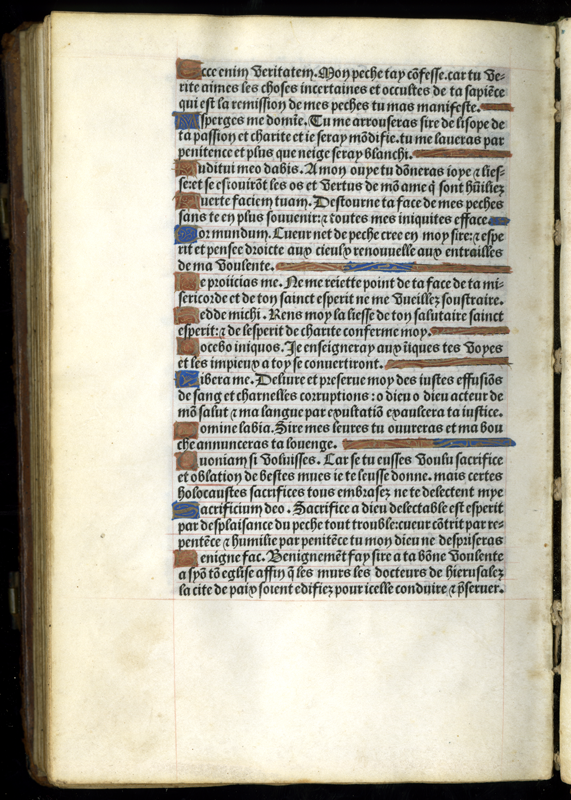 Ecce enim veritatem. Mon peche tay cõfesse. car tu ve-
rite aimes les choses incertaines et occultes de ta sapiẽce
qui est la remission de mes peches tu mas manifeste.
Asperges me domie. Tu me arrouseras sire de lisope de
ta passion et charite et ie seray mõdifie. tu me laueras par
penitence et plus que neige seray blanchi.
Auditui meo dabis. A mon ouye tu dõneras ioye ⁊ lies-
se: et se esiouirõt les os et vertus de mõ ame q̃ sont hũiliez
Auerte faciem tuam. Destourne ta face de mes peches
sans te en plus souuenir: ⁊ toutes mes iniquites efface.
Cor mundum. Cueur net de peche cree en moy sire: ⁊ espe
rit et pensee droicte aux cieulx renouuelle aux entrailles
de ma voulente.
Ne proiicias me. Ne me reiette point de ta face de ta mi-
sericorde et de ton sainct esperit ne me vueillez soustraire.
Redde michi. Rens moy la liesse de ton salutaire sainct
esperit: ⁊ de lesperit de charite conferme moy.
Docebo iniquos. Je enseigneray aux iiques tes voyes
et les impieux a toy se conuertiront.
Libera me. Deliure et preserue moy des iustes effusiõs
de sang et charnelles corruptions: o dieu o dieu acteur de
mõ salut ⁊ ma langue par exultatiõ exaulcera ta iustice.
Domine labia. Sire mes leures tu ouureras et ma bou
che annunceras ta louenge.
Quoniam si voluisses. Car se tu eusses voulu sacrifice
et oblation de bestes mues ie te leusse donne. mais certes
holocaustes sacrifices tous embrasez ne te delectent mye
Sacrificium deo. Sacrifice a dieu delectable est esperit
par desplaisance du peche tout trouble: cueur cõtrit par re-
pentẽce ⁊ humilie par penitẽce tu mon dieu ne despriseras
Benigne fac. Benignemẽt fay sire a ta bõne voulente
a syõ tõ eglise affin q̃ les murs les docteurs de hierusalez
la cite de paix soient edifiez pour icelle conduire ⁊ p̃seruer.